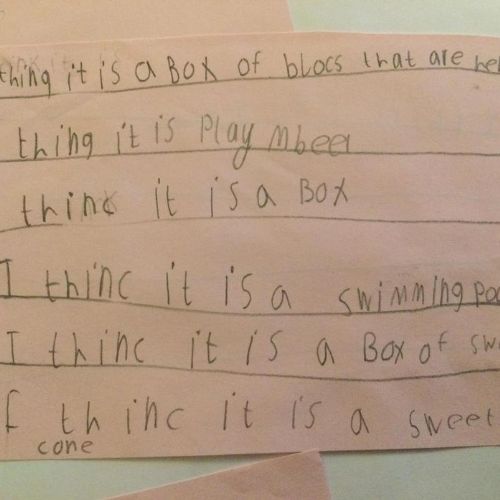 thing it is a Box of blocs that are
thing it is Play
thinc it is a Box
I thinc it is a swimming
I thinc it is a Box of
I thinc it is a sweet
cone